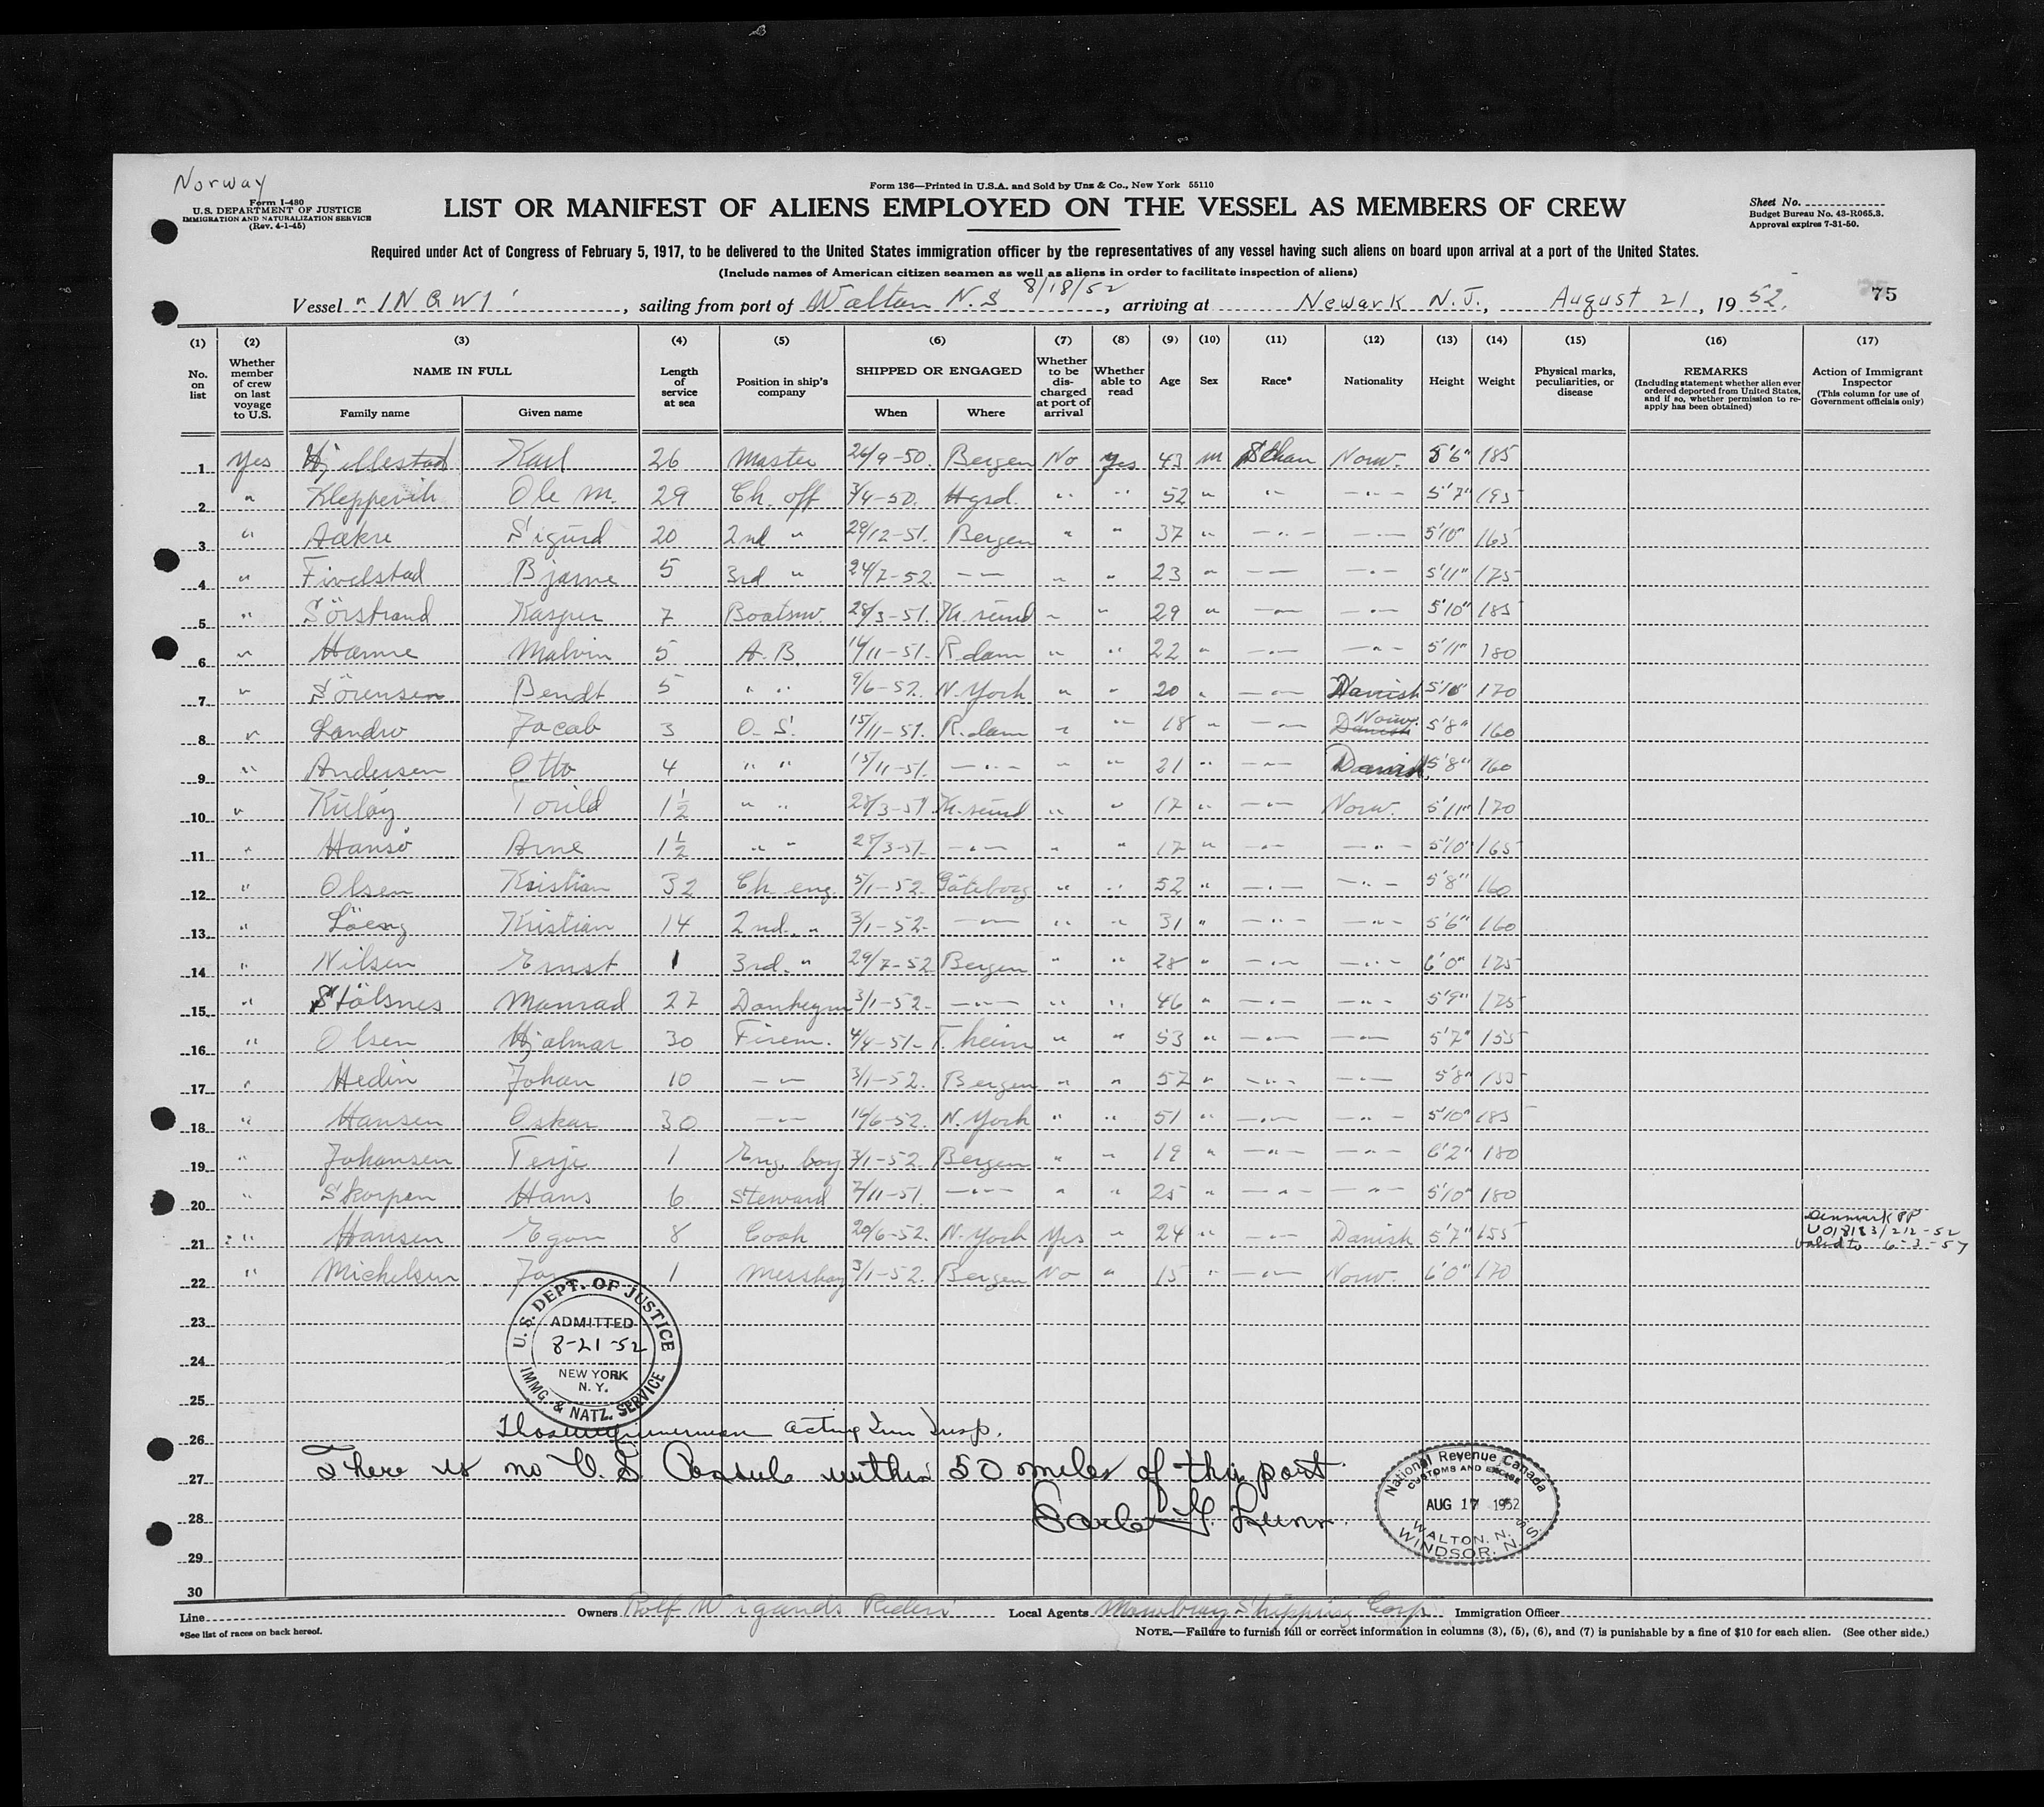 Norway
Form I-480
U.S. DEPARTMENT OF JUSTICE
IMMIGRATION AND NATURALIZATION SERVICE
(Rev. 4-1-45)
Form 136—Printed in U.S.A. and Sold by Unz & Co., New York 55110
LIST OR MANIFEST OF ALIENS EMPLOYED ON THE VESSEL AS MEMBERS OF CREW
Sheet No.
Budget Bureau No. 43-R065.3.
Approval expires 7-31-50.
Required under Act of Congress of February 5, 1917, to be delivered to the United States immigration officer by the representatives of any vessel having such aliens on board upon arrival at a port of the United States.
(Include names of American citizen seamen as well as aliens in order to facilitate inspection of aliens)
Vessel "INGWI", sailing from port of Walton N.S 8/18/52, arriving at Newark N.J., August 21, 1952.
75
(1) No. on list (2) Whether member of crew on last voyage to U.S. (3) NAME IN FULL Family name Given name (4) Length of service at sea (5) Position in ship's company (6) SHIPPED OR ENGAGED When Where (7) Whether to be discharged at port of arrival (8) Whether able to read (9) Age (10) Sex (11) Race* (12) Nationality (13) Height (14) Weight (15) Physical marks, peculiarities, or disease (16) REMARKS (Including statement whether alien ever ordered deported from United States, and if so, whether permission to reapply has been obtained) (17) Action of Immigrant Inspector (This column for use of Government officials only)
1 Yes Hjellestad Karl 26 Master 26/9-50. Bergen No Yes 43 m Scan Norw. 5'6" 185
2 " Kleppevik Ole M. 29 Ch. off 3/4-50. Hgsd. " " 52 " " -"- 5'7" 195
3 " Aakre Sigurd 20 2nd " 29/12-51. Bergen " " 37 " -"- -"- 5'10" 165
4 " Fivelstad Bjarne 5 3rd " 24/7-52 -"- " " 23 " -"- -"- 5'11" 175
5 " Sörstrand Kasper 7 Boatsw. 28/3-51. Kr. sund " " 29 " -"- -"- 5'10" 185
6 " Hamre Malvin 5 A.B 14/11-51. R.dam " " 22 " -"- -"- 5'11" 180
7 " Sörensen Bendt 5 " " 9/6-52. N. York " " 20 " -"- Danish 5'10" 170
8 " Landro Jacob 3 O.S. 15/11-51. R.dam " " 18 " -"- Danish Norw. 5'8" 160
9 " Andersen Otto 4 " " 15/11-51. -"- " " 21 " -"- Danish 5'8" 160
10 " Kuløy Torild 1½ " " 28/3-51 Kr. sund " " 17 " -"- Norw. 5'11" 170
11 " Hansö Arne 1½ " " 28/3-51. -"- " " 17 " -"- -"- 5'10" 165
12 " Olsen Kristian 32 Ch. eng. 5/1-52. Göteborg " " 52 " -"- -"- 5'8" 160
13 " Löeng Kristian 14 2nd. " 3/1-52. -"- " " 31 " -"- -"- 5'6" 160
14 " Nilsen Ernst 1 3rd. " 29/7-52 Bergen " " 28 " -"- -"- 6'0" 175
15 " Stölsnes Monrad 27 Donkeym 3/1-52. -"- " " 46 " -"- -"- 5'9" 175
16 " Olsen Hjalmar 30 Firem. 4/4-51. T.heim " " 53 " -"- -"- 5'7" 155
17 " Hedin Johan 10 -"- 3/1-52. Bergen " " 57 " -"- -"- 5'8" 155
18 " Hansen Oskar 30 -"- 14/6-52. N. York " " 51 " -"- -"- 5'10" 185
19 " Johansen Terje 1 Eng. boy 3/1-52. Bergen " " 19 " -"- -"- 6'2" 180
20 " Skorpen Hans 6 Steward 2/11-51. -"- " " 25 " -"- -"- 5'10" 180
21 " Hansen Egon 8 Cook 20/6-52. N. York Yes " 24 " -"- Danish 5'7" 155 Denmark PP U018183/212-52 valid to 6-3-57
22 " Michelsen 1 Messboy 3/1-52. Bergen No " 15 " -"- Norw. 6'0" 170
23
24
25
26
27
28
29
30
U.S. DEPT. OF JUSTICE
ADMITTED
8-21-52
NEW YORK
N.Y.
IMMG. & NATZ. SERVICE
Acting Imm Insp.
There is no U.S Consule within 50 miles of this port.
Lunn.
National Revenue Canada
CUSTOMS AND EXCISE
AUG 17 1952
WALTON, N.S.
WINDSOR, N.S.
Line Owners Rolf Wigands Rederi Local Agents Mowbray Shipping Corp. Immigration Officer
*See list of races on back hereof.
NOTE.—Failure to furnish full or correct information in columns (3), (5), (6), and (7) is punishable by a fine of $10 for each alien. (See other side.)